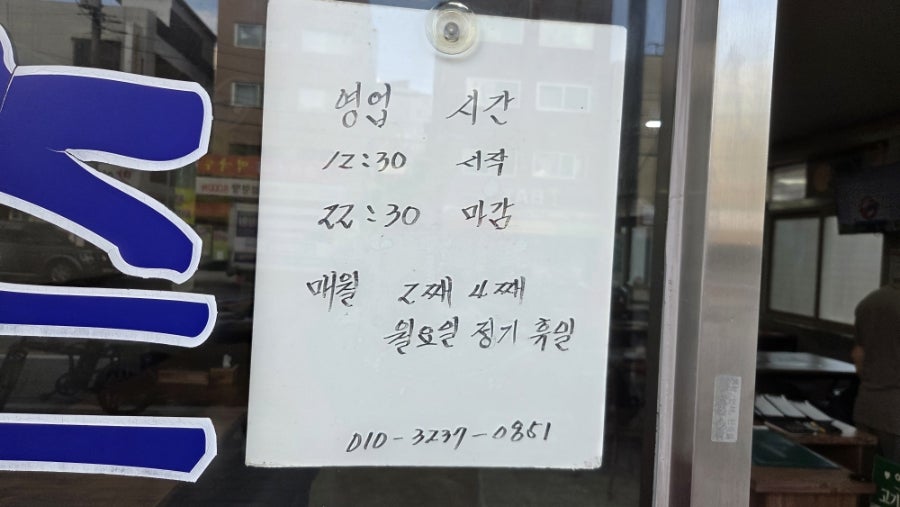 영업 시간
12:30 시작
22:30 마감
매월 2째 4째
월요일 정기 휴일
010-3237-0851